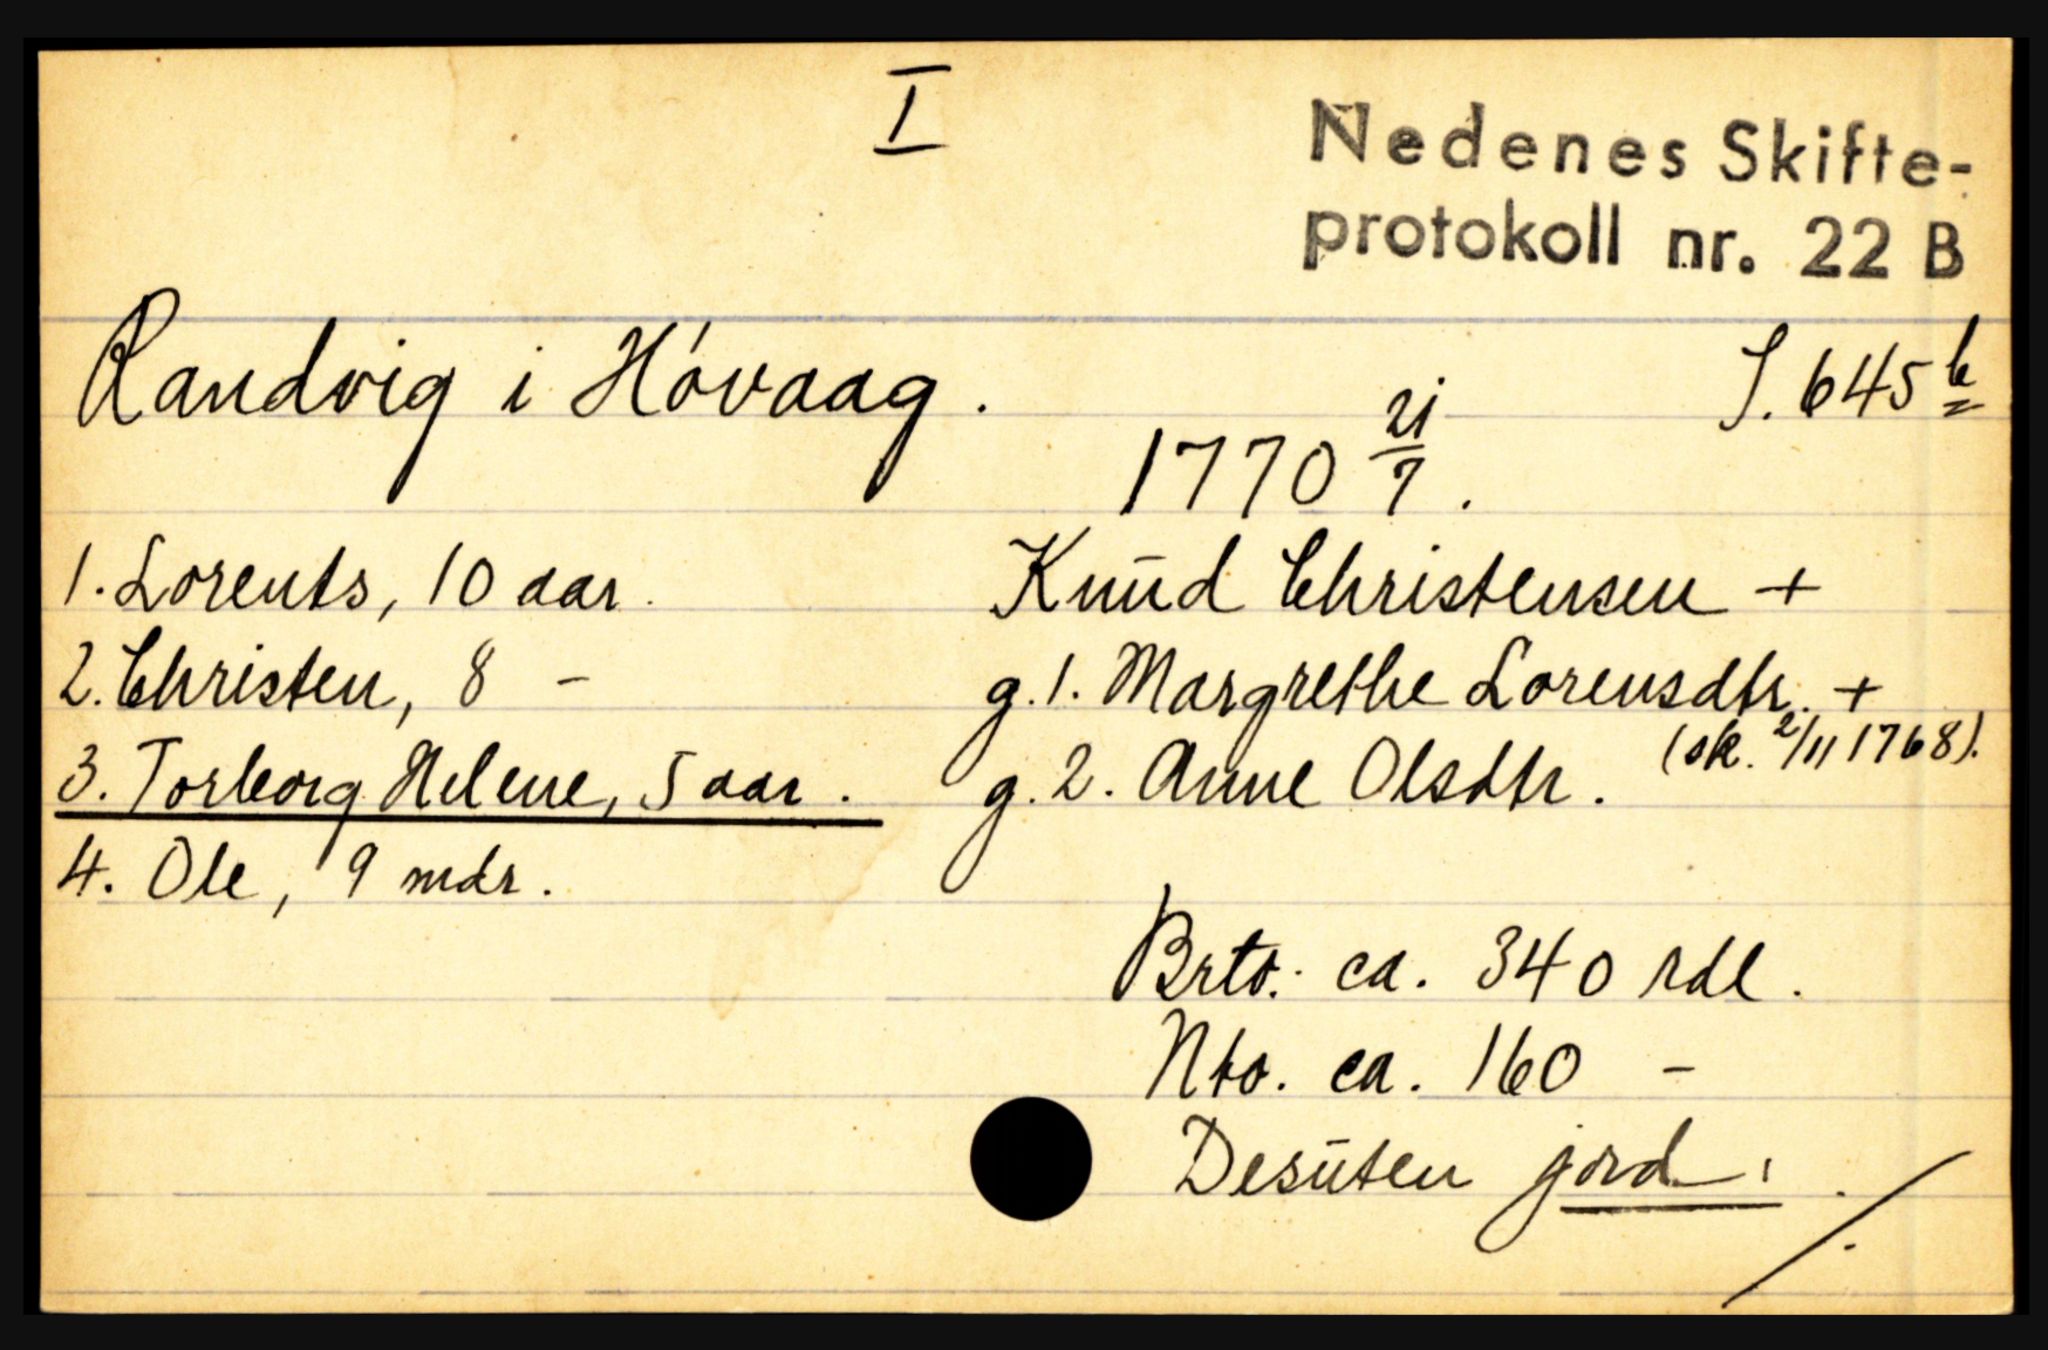 I
Nedenes Skifte-
protokoll nr. 22 B
Randvig i Hóvaag.
S. 645 b
1770 21/7.
1. Lorents, 10 aar.
2. Christen, 8 -
3. Torborg Helene, 5 aar.
4. Ole, 9 mdr.
Knūd Christensen +
g. 1. Margrethe Lorensdtr. +
(sk. 2/11 1768).
g. 2. Anne Olsdtr.
Brto. ca. 340 rdl.
Nto. ca. 160 -
Desūten jord.